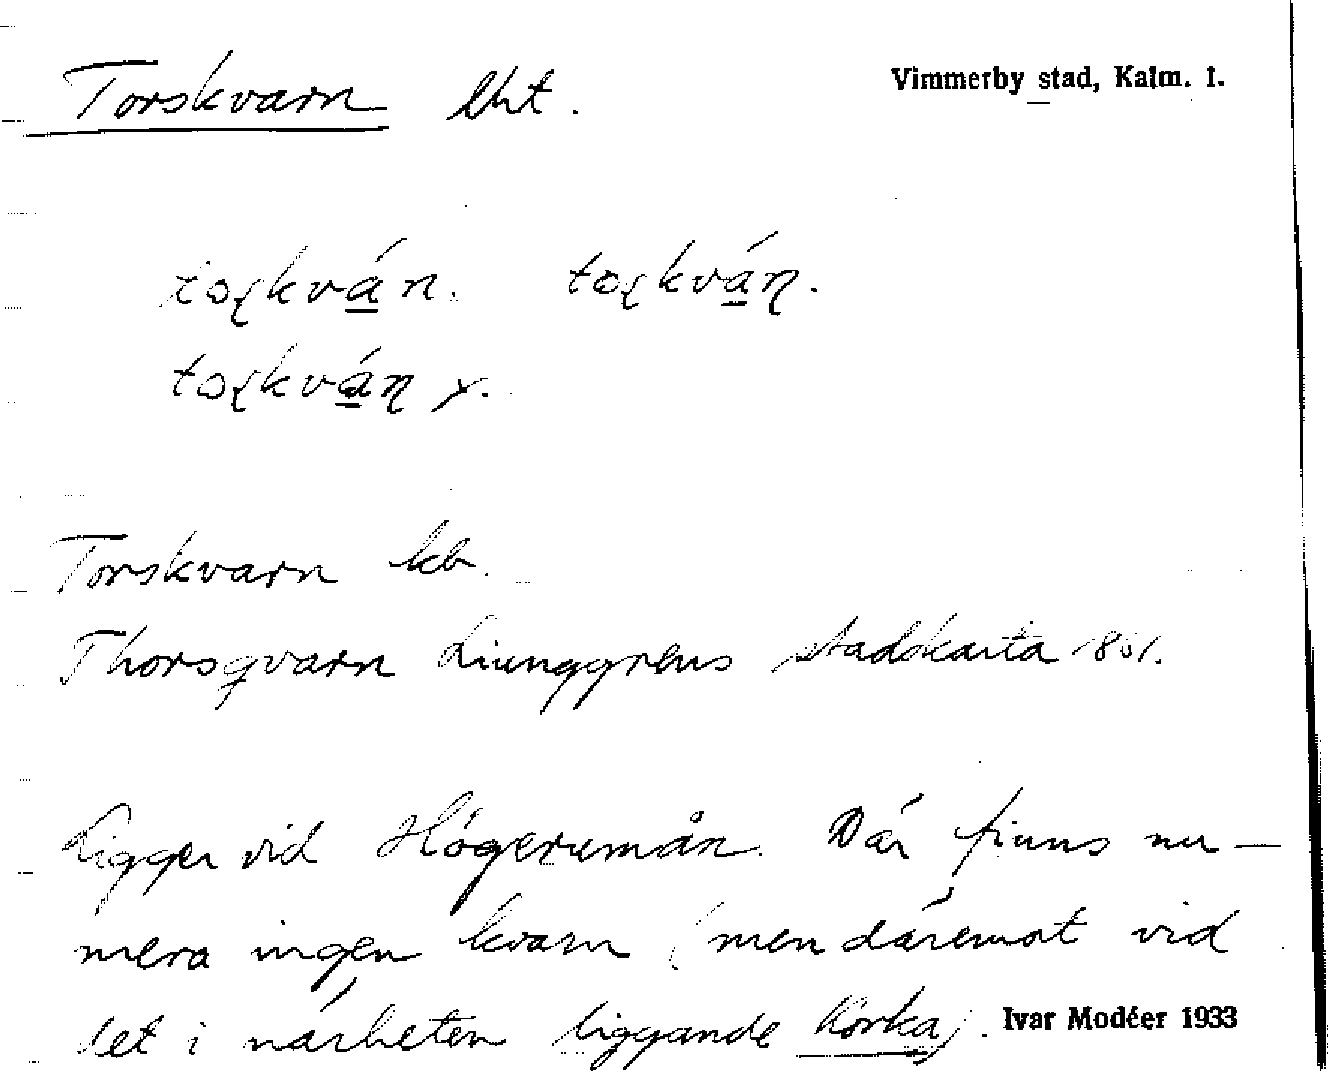 Torskvarn lht.
Vimmerby stad, Kalm. l.
toʂkván. toʂkváɳ.
toʂkváɳ x.
Torskvarn kb.
Thorsqvarn Liunggrens stadskarta 1861.
Ligger vid Högerumån. Där finns nu-
mera ingen kvarn (men däremot vid
det i närheten liggande Korka).
Ivar Modéer 1933